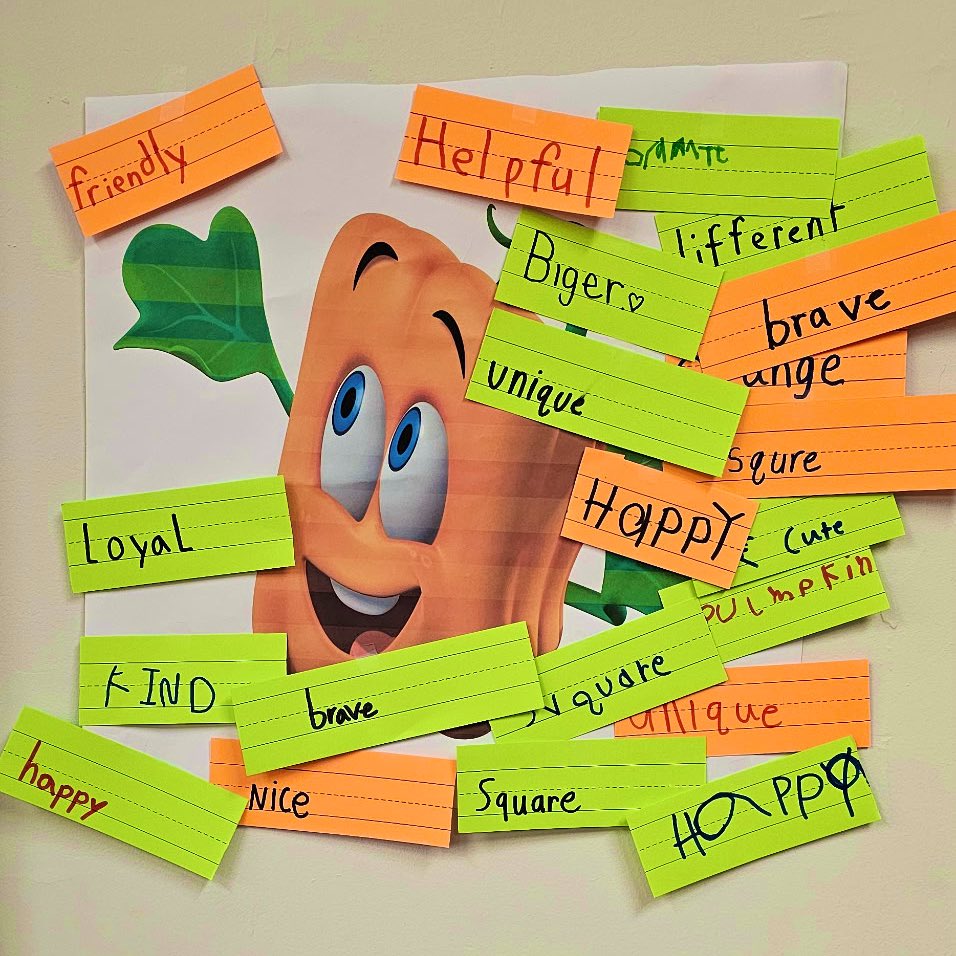 friendly
Helpful
different
Biger
brave
unique
squre
HAPPY
Loyal
Cute
PUlmpkin
square
KIND
brave
unique
happy
Nice
Square
HAPPY